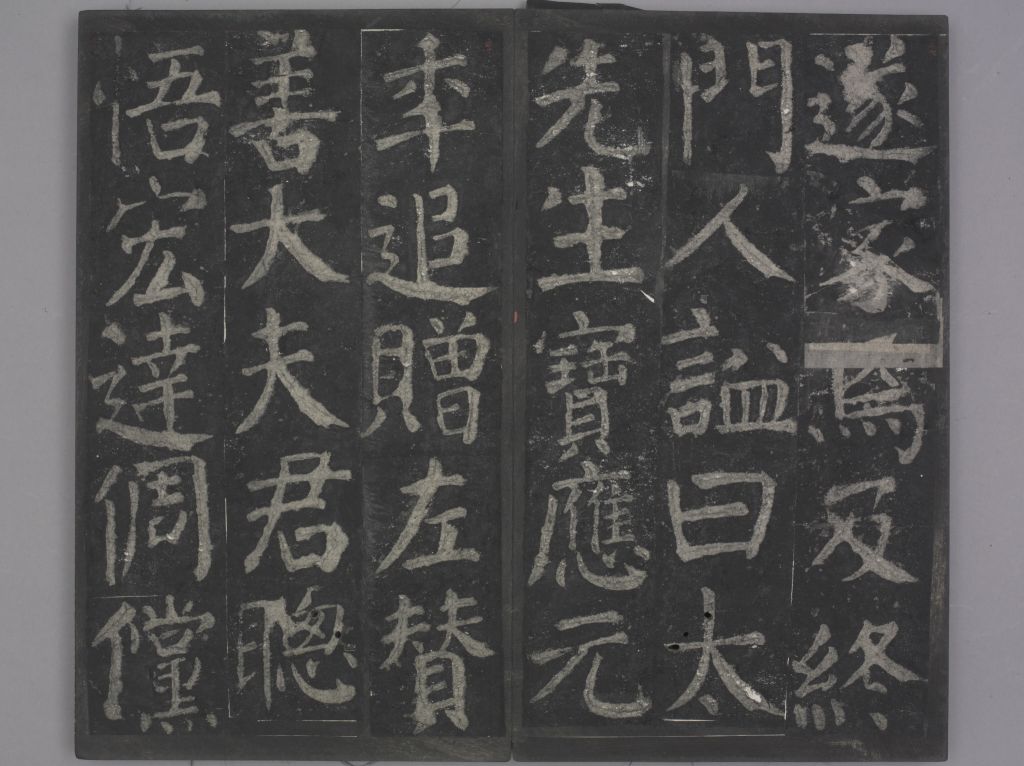 遂家焉及終
門人謚曰太
先生寶應元
年追贈左贊
善大夫君聰
悟宏達倜儻